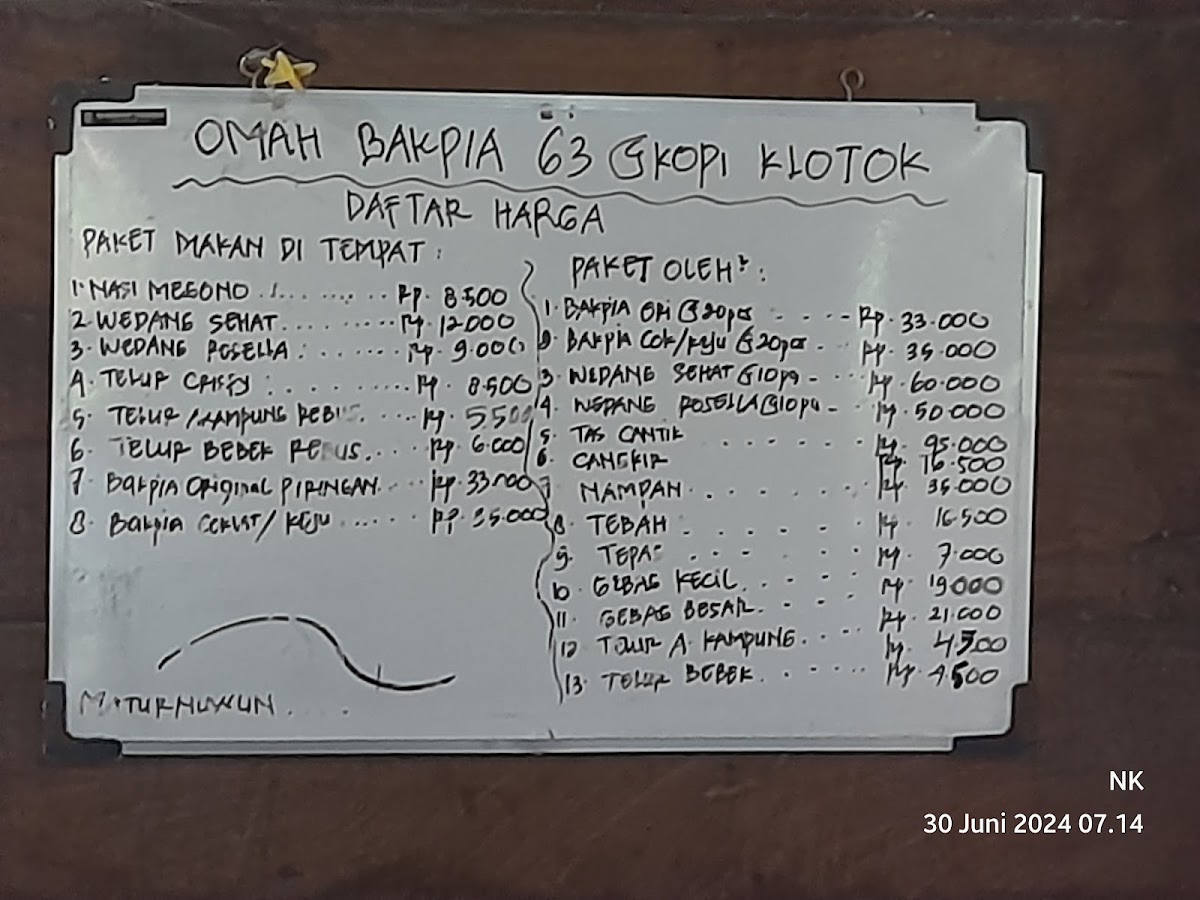 OMAH BAKPIA 63 @ KOPI KLOTOK
DAFTAR HARGA
PAKET MAKAN DI TEMPAT :
1. NASI MEGONO ......... Rp. 8.500
2. WEDANG SEHAT.......... Rp. 12.000
3. WEDANG ROSELLA : ...... Rp. 9.000
4. TELUR CRISPY : ......... Rp. 8.500
5. TELUR / KAMPUNG REBUS .... Rp. 5.500
6. TELUR BEBEK REBUS.... Rp. 6.000
7. Bakpia Original PIRINGAN.... Rp. 33.000
8. Bakpia COKLAT / KEJU ..... Rp. 35.000
MATURNUWUN . . . .
PAKET OLEH² :
1. BAKPIA ORI @20pcs . . . . . Rp. 33.000
2. BAKPIA Cok/keju @20pcs . Rp. 35.000
3. WEDANG SEHAT @10pcs - Rp. 60.000
4. WEDANG ROSELLA @10pcs - Rp. 50.000
5. TAS CANTIK . . . . . . Rp. 95.000
6. CANGKIR Rp. 16.500
7. NAMPAN . . . . . . Rp. 35.000
8. TEBAH . . . . . Rp. 16.500
9. TEPAS . . . . . Rp. 7.000
10. GEBAG KECIL. . . . Rp. 19.000
11. GEBAG BESAR. . . . Rp. 21.000
12. TELUR A. KAMPUNG. . . . Rp. 4.500
13. TELUR BEBEK. . . . . . Rp. 4.500
NK
30 Juni 2024 07.14